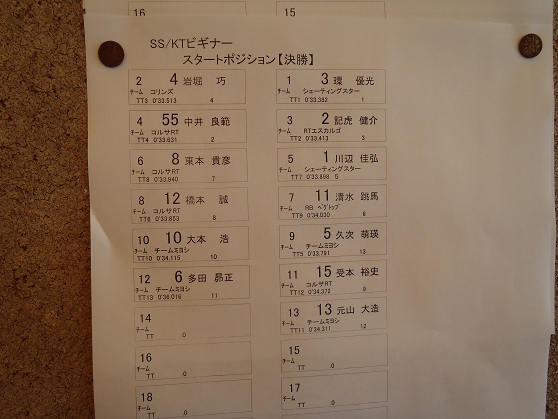 16
15
SS/KTビギナー
スタートポジション【決勝】
2 4 岩堀 巧
チーム コリンズ
TT3 0'33.513 4
1 3 環 優光
チーム シューティングスター
TT1 0'33.382 1
4 55 中井 良範
チーム コルサRT
TT4 0'33.631 2
3 2 記虎 健介
チーム RTエスカルゴ
TT2 0'33.413 3
6 8 東本 貴彦
チーム コルサRT
TT8 0'33.940 7
5 1 川辺 佳弘
チーム シューティングスター
TT7 0'33.898 5
8 12 橋本 誠
チーム コルサRT
TT6 0'33.853 8
7 11 清水 跳馬
チーム RB ペグトップ
TT9 0'34.030 6
10 10 大本 浩
チーム チームミヨシ
TT10 0'34.115 10
9 5 久次 萌瑛
チーム チームミヨシ
TT5 0'33.791 13
12 6 多田 昴正
チーム チームミヨシ
TT13 0'36.016 11
11 15 受本 裕史
チーム コルサRT
TT12 0'34.372 9
14
チーム
TT .0
13 13 元山 大造
チーム チームミヨシ
TT11 0'34.311 12
16
チーム
TT .0
15
チーム
TT .0
18
17
チーム
TT .0